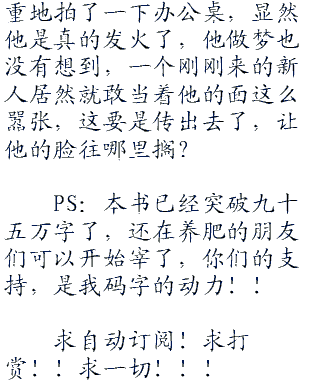 重地拍了一下办公桌，显然
他是真的发火了，他做梦也
没有想到，一个刚刚来的新
人居然就敢当着他的面这么
嚣张，这要是传出去了，让
他的脸往哪里搁？
PS：本书已经突破九十
五万字了，还在养肥的朋友
们可以开始宰了，你们的支
持，是我码字的动力！！
求自动订阅！求打
赏！！求一切！！！